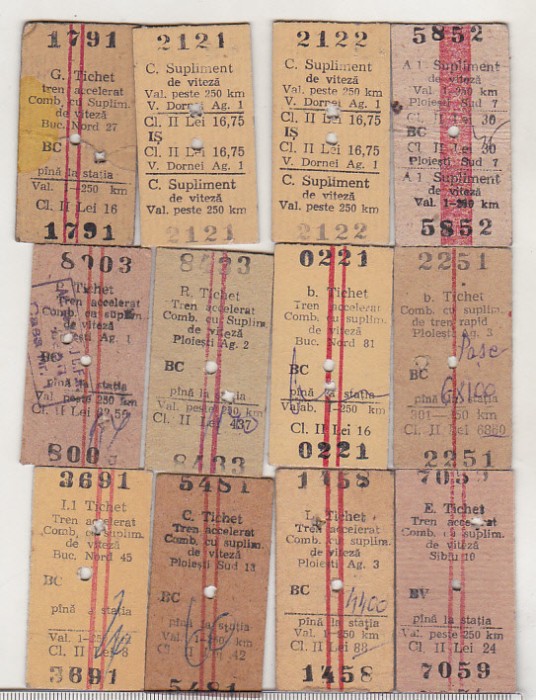 1791
G. Tichet
tren accelerat
Comb. cu Suplim.
de viteză
Buc. Nord 27
BC
pînă la stația
Val. 1-250 km
Cl. II Lei 16
1791
2121
C. Supliment
de viteză
Val. peste 250 km
V. Dornei Ag. 1
Cl. II Lei 16,75
IȘ
Cl. II Lei 16,75
V. Dornei Ag. 1
C. Supliment
de viteză
Val. peste 250 km
2121
2122
C. Supliment
de viteză
Val. peste 250 km
V. Dornei Ag. 1
Cl. II Lei 16,75
IȘ
Cl. II Lei 16,75
V. Dornei Ag. 1
C. Supliment
de viteză
Val. peste 250 km
2122
5852
A 1 Supliment
de viteză
Val. 1-250 km
Ploiești Sud 7
Cl. II Lei 30
BC
Cl. II Lei 30
Ploiești Sud 7
A 1 Supliment
de viteză
Val. 1-250 km
5852
8003
Tichet
Tren accelerat
Comb. cu suplim.
de viteză
Ploiești Ag. 1
BC
pînă la stația
Val. peste 250 km
Cl. II Lei
800
8433
R. Tichet
Tren accelerat
Comb. cu Suplim.
de viteză
Ploiești Ag. 2
BC
pînă la stația
Val. peste 250 km
Cl. II Lei
8433
0221
b. Tichet
Tren accelerat
Comb. cu suplim.
de viteză
Buc. Nord 81
BC
pînă la stația
Valab. 1-250 km
Cl. II Lei 16
0221
2251
b. Tichet
Comb. cu suplim.
de tren rapid
Ploiești Ag. 3
BC
pînă la stația
km
Cl. II Lei
2251
3691
I.1 Tichet
Tren accelerat
Comb. cu suplim.
de viteză
Buc. Nord 45
BC
pînă la stația
Val. 1-250 km
Cl. II Lei 8
3691
5481
C. Tichet
Tren accelerat
Comb. cu suplim.
de viteză
Ploiești Sud 13
BC
pînă la stația
Val. 1-250 km
Cl. II Lei 42
5481
1458
Tichet
Tren accelerat
Comb. cu suplim.
de viteză
Ploiești Ag. 3
BC
4400
pînă la stația
Val. 1-250 km
Cl. II Lei 88
1458
7059
E. Tichet
Tren accelerat
Comb. cu suplim.
de viteză
Sibiu 10
BV
pînă la stația
Val. peste 250 km
Cl. II Lei 24
7059